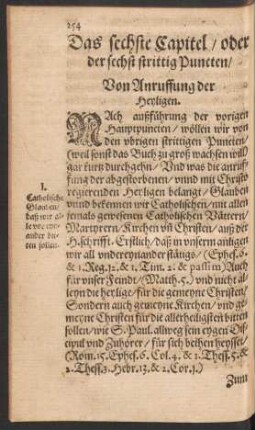 254
Das sechste Capitel / oder
der sechst strittig Puncten /
Von Anruffung der
Heyligen.
NAch außführung der vorigen
Hauptpuncten / wöllen wir von
den vbrigen strittigen Puncten /
(weil sonst das Buch zu groß wachsen will)
gar kurtz durchgehn / Vnd was die anruf-
fung der abgestorbenen / vnnd mit Christo
regierenden Heyligen belangt / Glauben
vnnd bekennen wir Catholischen / mit allen
jemals gewesenen Catholischen Vättern /
Martyrern / Kirchen vñ Christen / auß der
H. schrifft. Erstlich / daß in vnserm anligen
wir all vndereynander
(Ephes. 6.
& 1. Reg. 12. & 1. Tim. 2. & passim) Auch
für vnser Feindt / (Matth. 5.) vnd nicht al-
leyn die heylige / für die gemeyne Christen /
Sondern auch gemeyne Kirchen / vnd ge-
meyne Christen für die allerheiligsten bitten
sollen / wie S. Paul. allweg sein eygen Di-
scipul vnd Zuhörer / für sich betten heysset /
(Rom. 15. Ephes. 6. Col. 4. & 1. Thess. 5. &
2. Thess. 3. Hebr. 13. & 2. Cor. 1.)
Zum
1.
Catholische
Glauben /
daß wir al-
ander bit-
ten sollen.